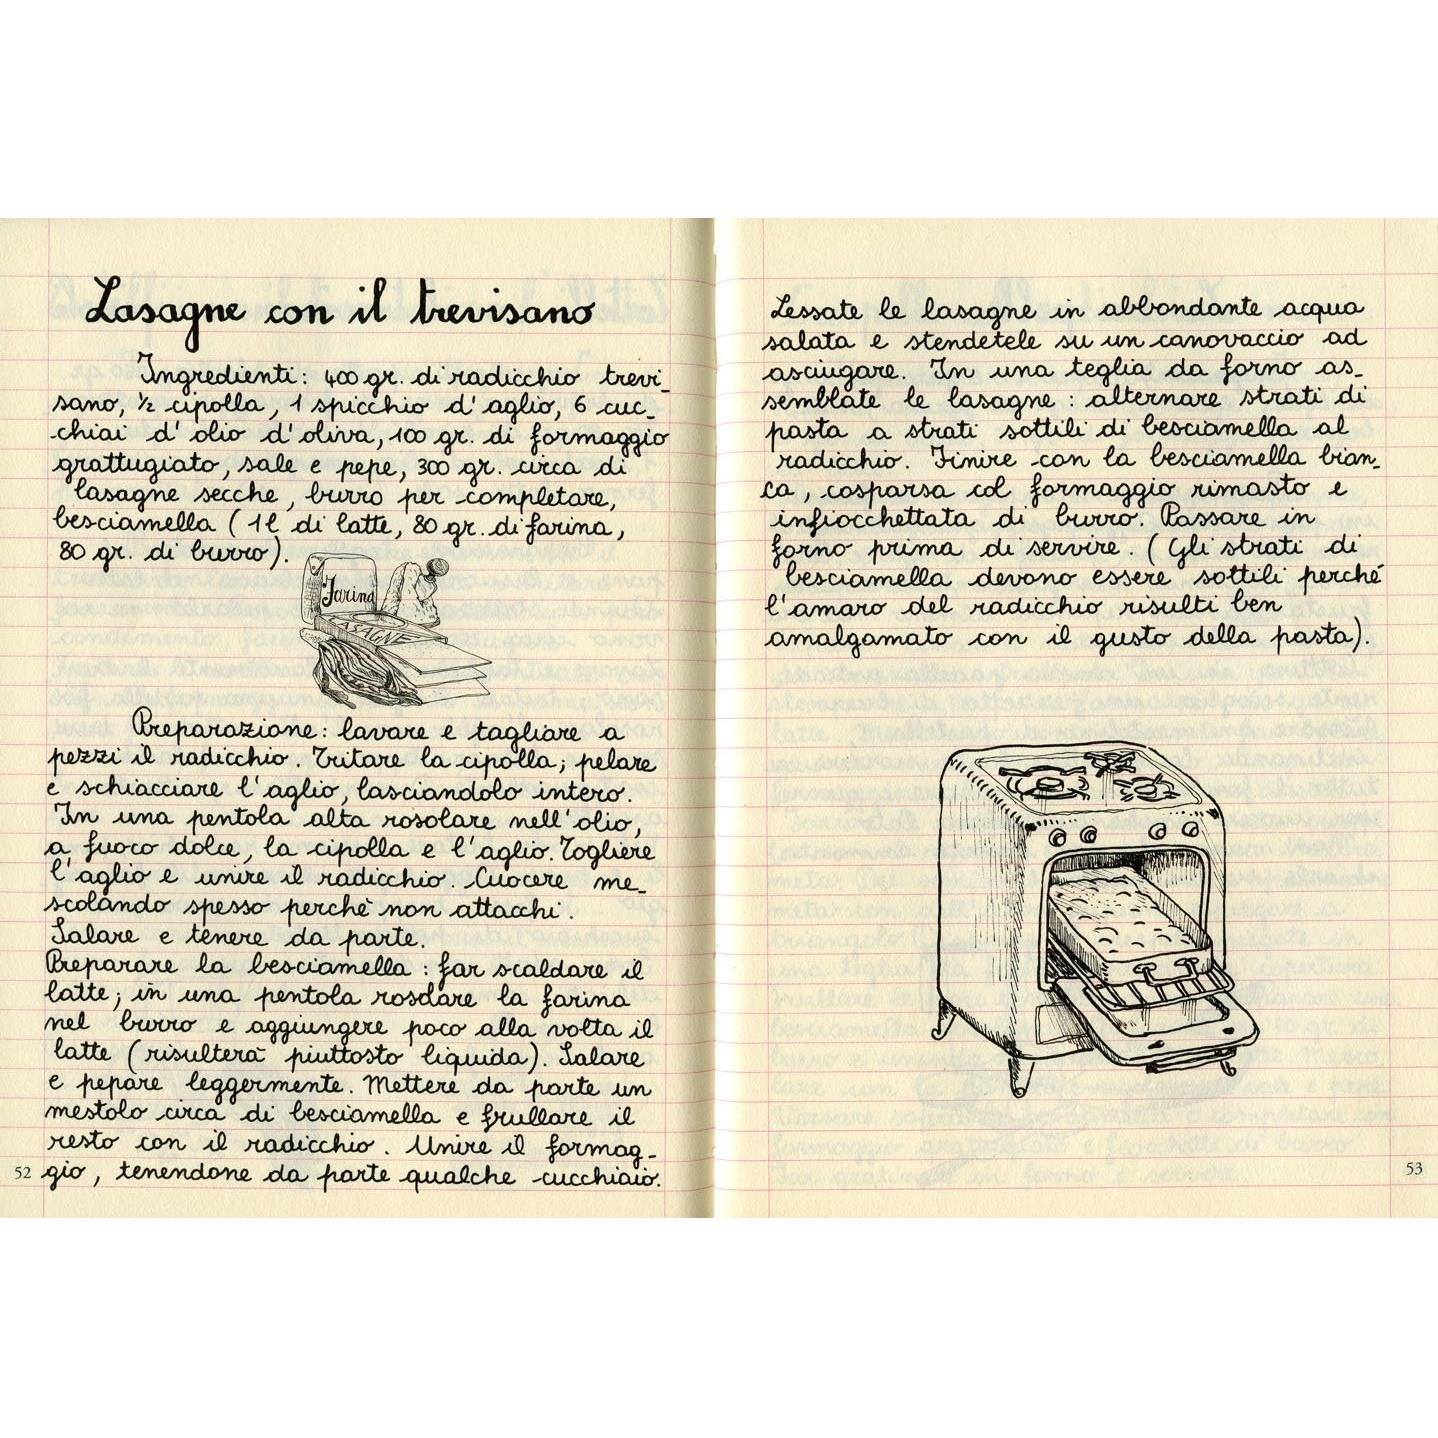 Lasagne con il trevisano
Ingredienti: 400 gr. di radicchio trevi_
sano, ½ cipolla, 1 spicchio d'aglio, 6 cuc_
chiai d'olio d'oliva, 100 gr. di formaggio
grattugiato, sale e pepe, 300 gr. circa di
lasagne secche, burro per completare,
besciamella (1 l di latte, 80 gr. di farina,
80 gr. di burro).
Farina
LASAGNE
Preparazione: lavare e tagliare a
pezzi il radicchio. Tritare la cipolla; pelare
e schiacciare l'aglio, lasciandolo intero.
In una pentola alta rosolare nell'olio,
a fuoco dolce, la cipolla e l'aglio. Togliere
l'aglio e unire il radicchio. Cuocere me_
scolando spesso perchè non attacchi.
Salare e tenere da parte.
Preparare la besciamella: far scaldare il
latte; in una pentola rosolare la farina
nel burro e aggiungere poco alla volta il
latte (risulterà piuttosto liquida). Salare
e pepare leggermente. Mettere da parte un
mestolo circa di besciamella e frullare il
resto con il radicchio. Unire il formag_
gio, tenendone da parte qualche cucchiaio.
52
Lessate le lasagne in abbondante acqua
salata e stendetele su un canovaccio ad
asciugare. In una teglia da forno as_
semblate le lasagne: alternare strati di
pasta a strati sottili di besciamella al
radicchio. Finire con la besciamella bian_
ca, cosparsa col formaggio rimasto e
infiocchettata di burro. Passare in
forno prima di servire. (Gli strati di
besciamella devono essere sottili perché
l'amaro del radicchio risulti ben
amalgamato con il gusto della pasta).
53